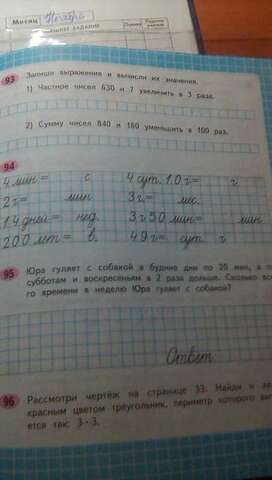 Месяц Ноябрь
Оценка
93 Запиши выражения и вычисли их значения.
1) Частное чисел 630 и 7 увеличить в 3 раза.
2) Сумму чисел 840 и 160 уменьшить в 100 раз.
94
4 мин = с. 4 сут. 10 ч = ч
2 ч = мин 3 г = мес.
14 дней = нед. 3 ч 50 мин = мин
200 лет = в. 49 ч = сут. ч
95 Юра гуляет с собакой в будние дни по 20 мин, а по
субботам и воскресеньям в 2 раза дольше. Сколько
го времени в неделю Юра гуляет с собакой?
Ответ:
96 Рассмотри чертёж на странице 33. Найди и
красным цветом треугольник, периметр которого
ется так: 3 · 3.